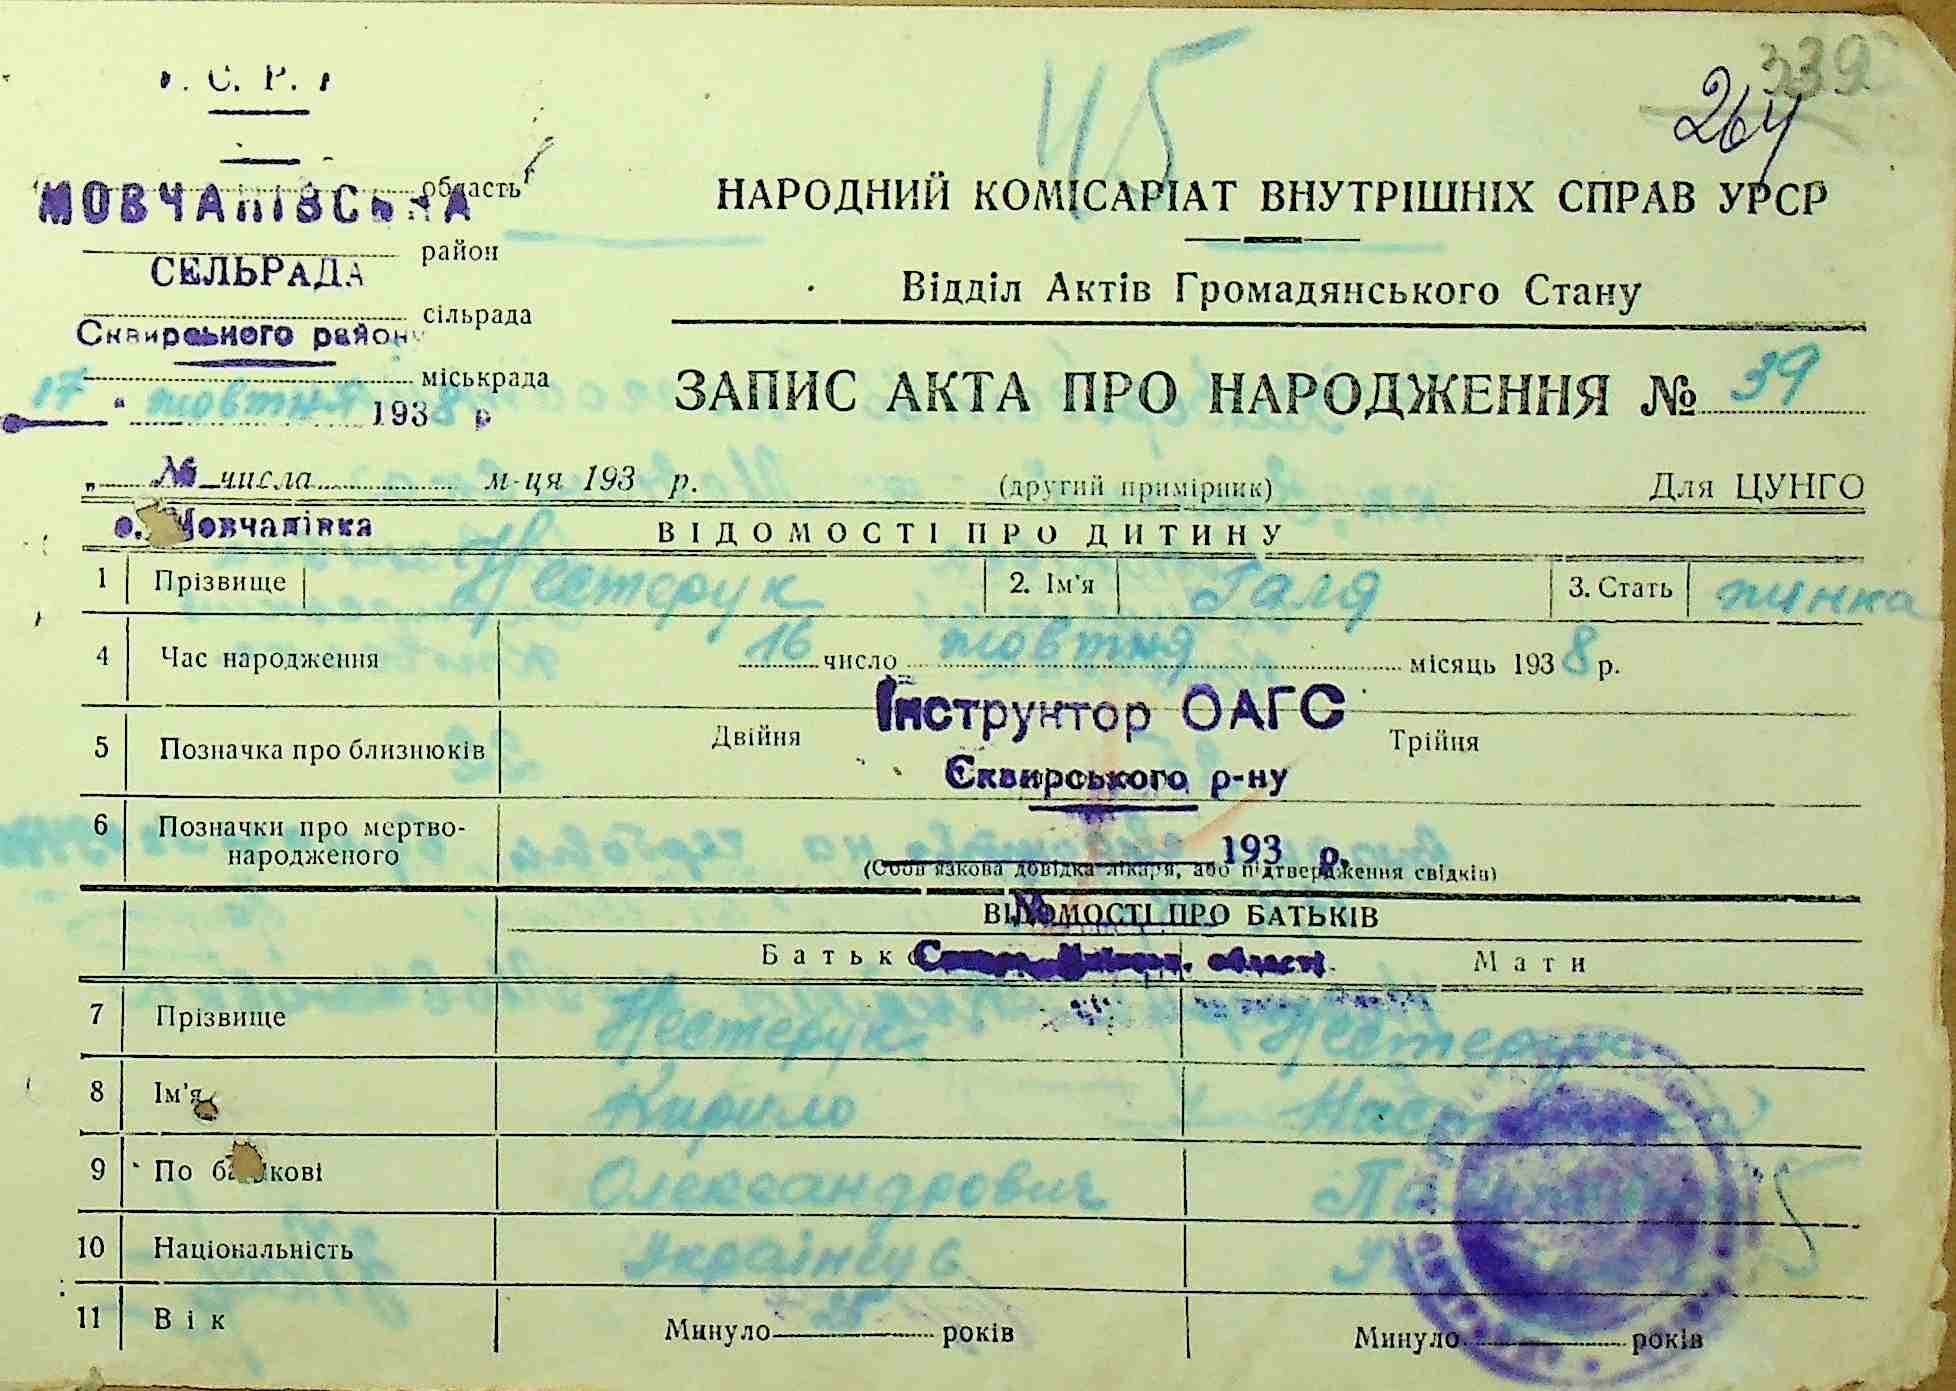 С. Р.
45
339
264
МОВЧАНІВСЬКА область
район
СЕЛЬРАДА
сільрада
Сквирського району
міськрада
17 " жовтня 1938 р
№ числа м-ця 193 р.
с. Мовчанівка
НАРОДНИЙ КОМІСАРІАТ ВНУТРІШНІХ СПРАВ УРСР
Відділ Актів Громадянського Стану
ЗАПИС АКТА ПРО НАРОДЖЕННЯ № 39
(другий примірник) Для ЦУНГО
ВІДОМОСТІ ПРО ДИТИНУ
1 Прізвище Нестерук 2. Ім'я Галя 3. Стать жинка
4 Час народження 16 число жовтня місяць 1938 р.
Інструктор ОАГС
5 Позначка про близнюків Двійня Трійня
Сквирського р-ну
6 Позначки про мертво-
народженого
193 р.
(Обов'язкова довідка лікаря, або підтвердження свідків)
ВІДОМОСТІ ПРО БАТЬКІВ
Батько області Мати
7 Прізвище Нестерук Нестерук
8 Ім'я Кирило
9 По батькові Олександрович
10 Національність Українець
11 Вік Минуло 35 років Минуло років